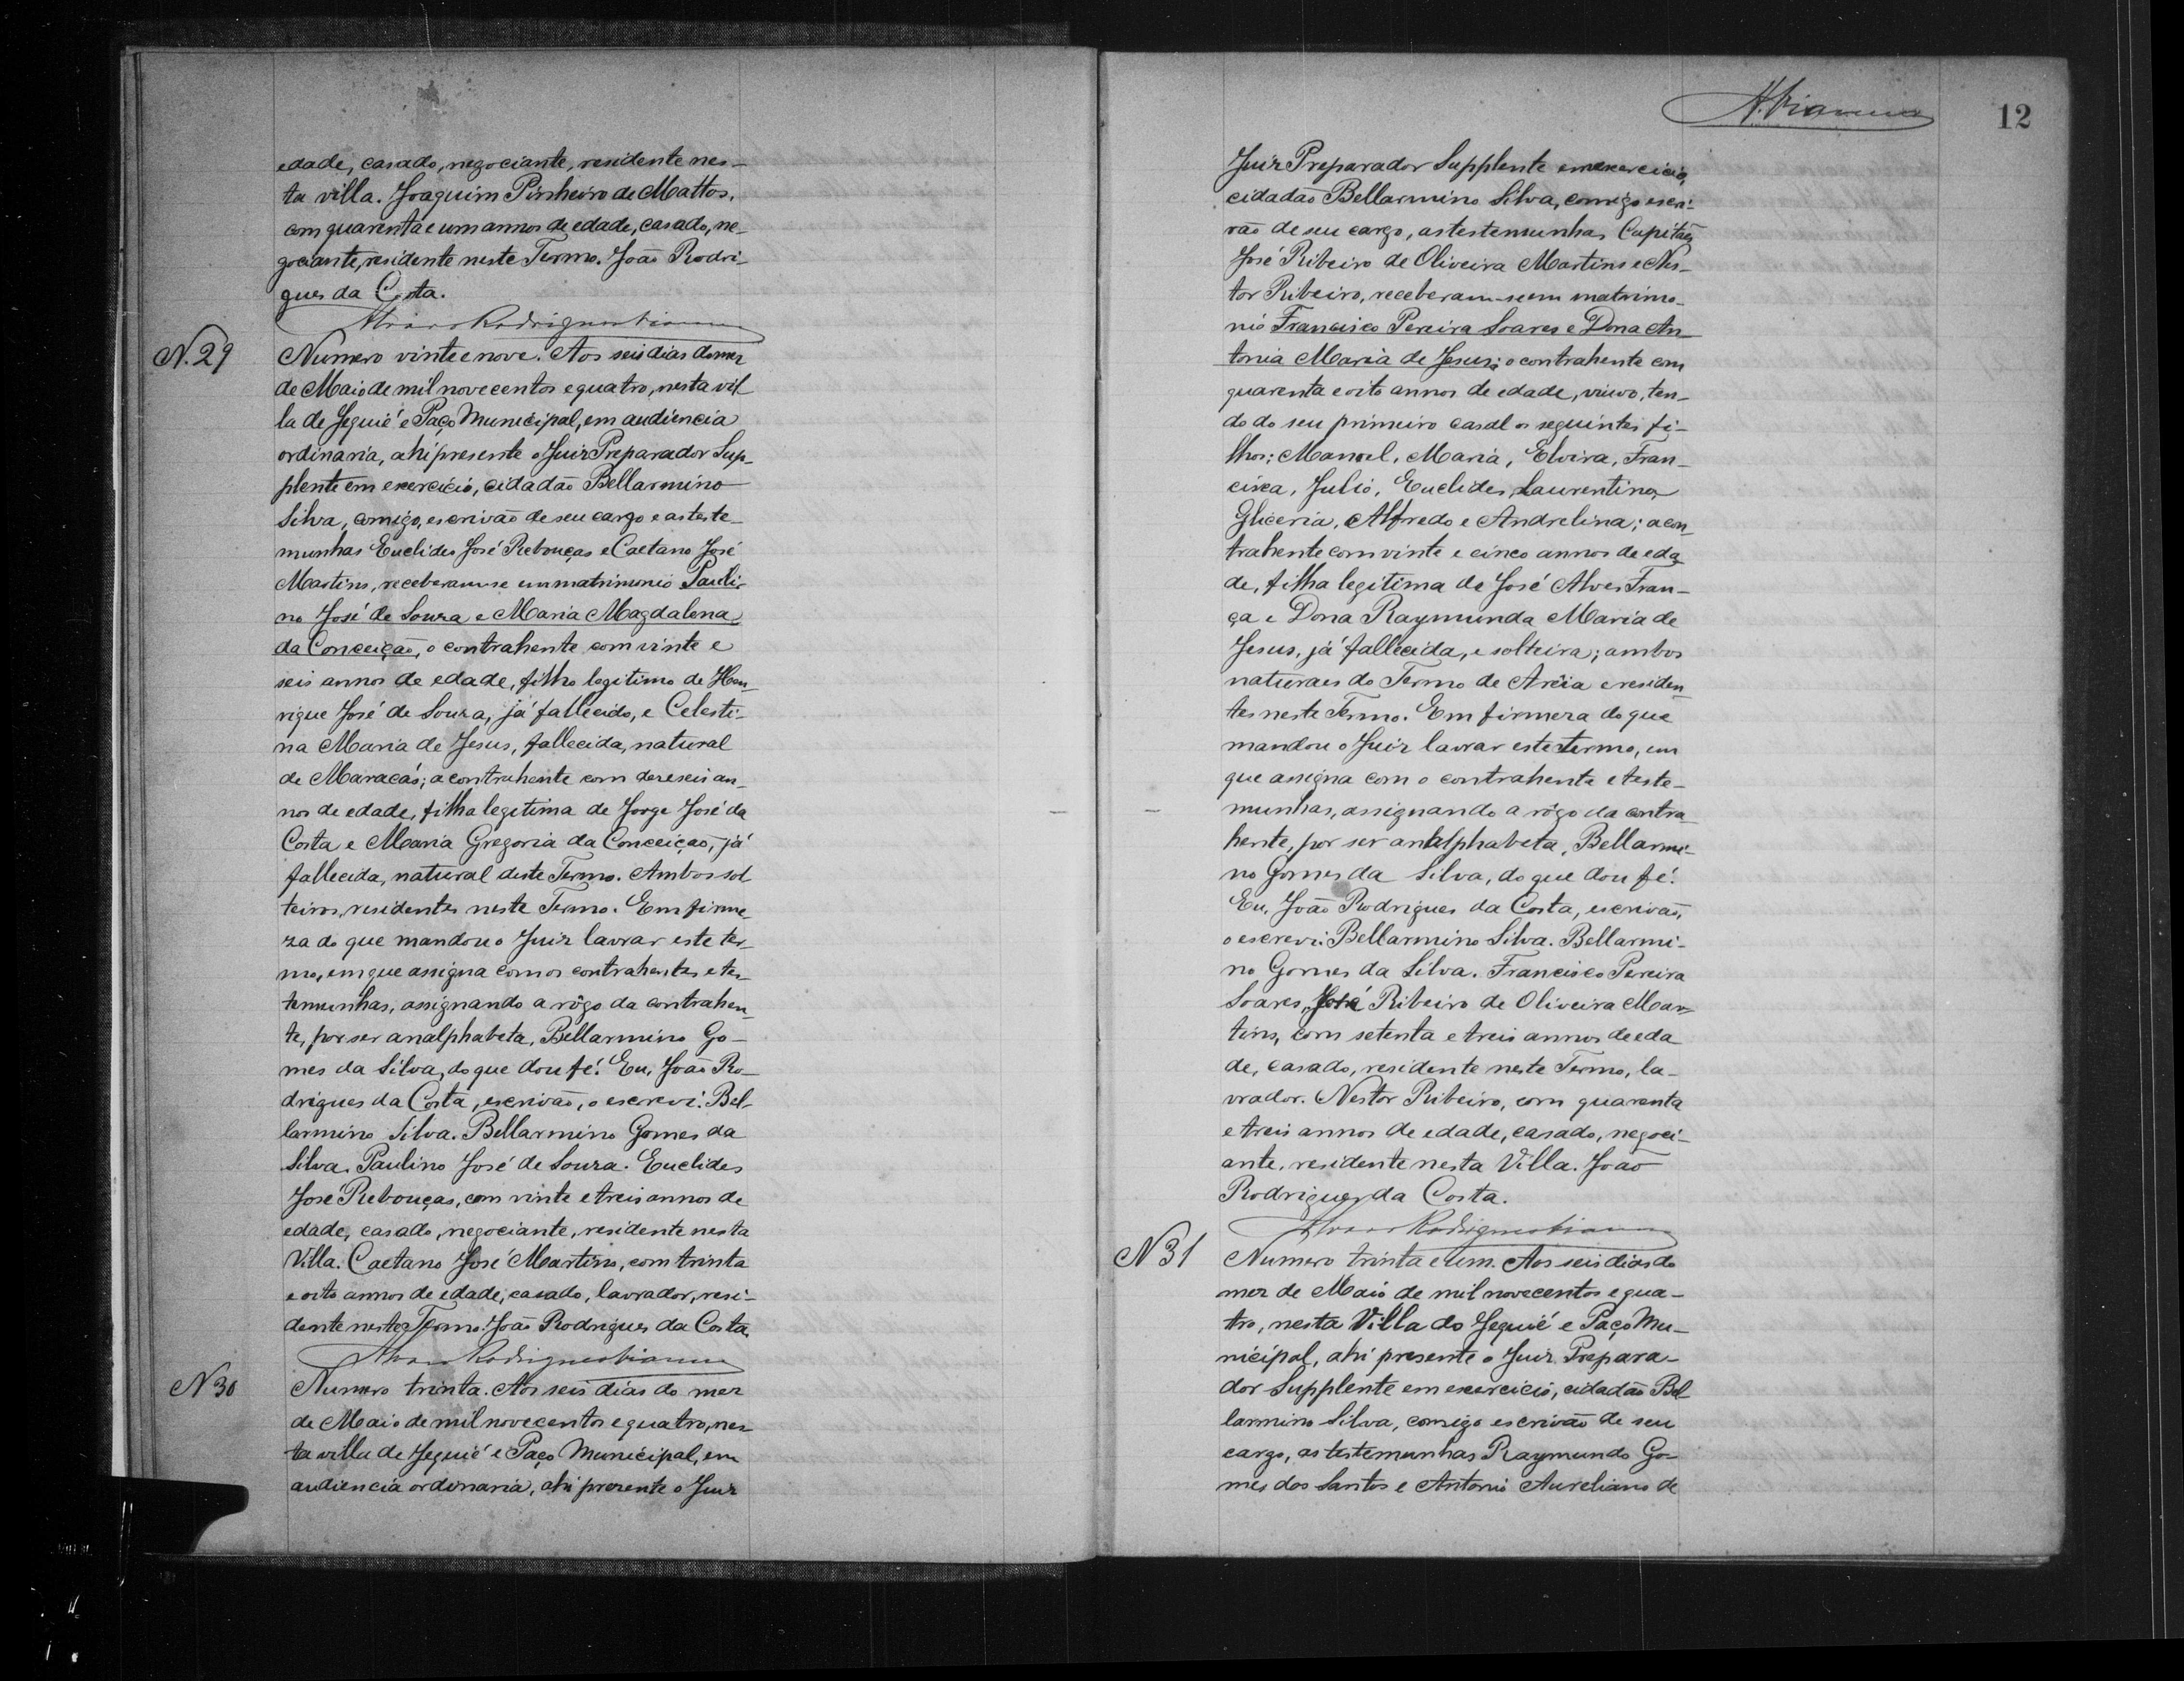 edade, casado, negociante, residente nes-
ta villa. Joaquim Pinheiro de Mattos,
com quarenta e um annos de edade, casado, ne-
gociante, residente neste Termo. João Rodri-
gues da Costa.
Alvaro Rodrigues Vianna
N. 29
Numero vinte e nove. Aos seis dias do mez
de Maio de mil novecentos e quatro, nesta vil
la de Jequié e Paço Municipal, em audiencia
ordinaria, ahi presente o Juiz Preparador Sup-
plente em exercicio, cidadão Bellarmino
Silva, comigo, escrivão de seu cargo e as teste-
munhas Euclides José Rebouças e Caetano José
Martins, receberam-se em matrimonio Pauli-
no José de Souza e Maria Magdalena
da Conceição, o contrahente com vinte e
seis annos de edade, filho legitimo de Hen-
rique José de Souza, já fallecido, e Celesti-
na Maria de Jesus, fallecida, natural
de Maracás; a contrahente com dezeseis an-
nos de edade, filha legitima de Jorge José da
Costa e Maria Gregoria da Conceição, já
fallecida, natural deste Termo. Ambos sol
teiros, residentes neste Termo. Em firme-
za do que mandou o Juiz lavrar este ter-
mo, em que assigna com os contrahentes e tes-
temunhas, assignando a rôgo da contrahen-
te, por ser analphabeta, Bellarmino Go-
mes da Silva, do que dou fé. Eu, João Ro-
drigues da Costa, escrivão, o escrevi. Bel-
larmino Silva. Bellarmino Gomes da
Silva. Paulino José de Souza. Euclides
José Rebouças, com vinte e treis annos de
edade, casado, negociante, residente nesta
Villa. Caetano José Martins, com trinta
e oito annos de edade, casado, lavrador, resi-
dente neste Termo. João Rodrigues da Costa.
Alvaro Rodrigues Vianna
N 30
Numero trinta. Aos seis dias do mez
de Maio de mil novecentos e quatro, nes-
ta villa de Jequié e Paço Municipal, em
audiencia ordinaria, ahi prezente o Juiz
A. Vianna
12
Juiz Preparador Supplente em exercicio,
cidadão Bellarmino Silva, comigo escri-
vão de seu cargo, as testemunhas Capitão
José Ribeiro de Oliveira Martins e Nes-
tor Ribeiro, receberam-se em matrimo-
nio Francisco Pereira Soares e Dona An-
tonia Maria de Jesus; o contrahente com
quarenta e oito annos de edade, viuvo, ten-
do do seu primeiro casal os seguintes fi-
lhos: Manoel, Maria, Elvira, Fran-
cisca, Julio, Euclides, Laurentino,
Gliceria, Alfredo e Andrelina; a con-
trahente com vinte e cinco annos de eda-
de, filha legitima de José Alves Fran-
ça e Dona Raymunda Maria de
Jesus, já fallecida, e solteira; ambos
naturaes do Termo de Arêia e residen-
tes neste Termo. Em firmeza do que
mandou o Juiz lavrar este termo, em
que assigna com o contrahente e teste-
munhas, assignando a rôgo da contra-
hente, por ser analphabeta, Bellarmi-
no Gomes da Silva, do que dou fé.
Eu, João Rodrigues da Costa, escrivão,
o escrevi. Bellarmino Silva. Bellarmi-
no Gomes da Silva. Francisco Pereira
Soares, José Ribeiro de Oliveira Mar-
tins, com setenta e treis annos de eda
de, casado, residente neste Termo, la-
vrador. Nestor Ribeiro, com quarenta
e treis annos de edade, casado, negoci-
ante, residente nesta Villa. João
Rodrigues da Costa.
Alvaro Rodrigues Vianna
N 31
Numero trinta e um. Aos seis dias do
mez de Maio de mil novecentos e qua-
tro, nesta Villa do Jequié e Paço Mu-
nicipal, ahi presente o Juiz Prepara-
dor Supplente em exercicio, cidadão Bel
larmino Silva, comigo escrivão de seu
cargo, as testemunhas Raymundo Go-
mes dos Santos e Antonio Aureliano de